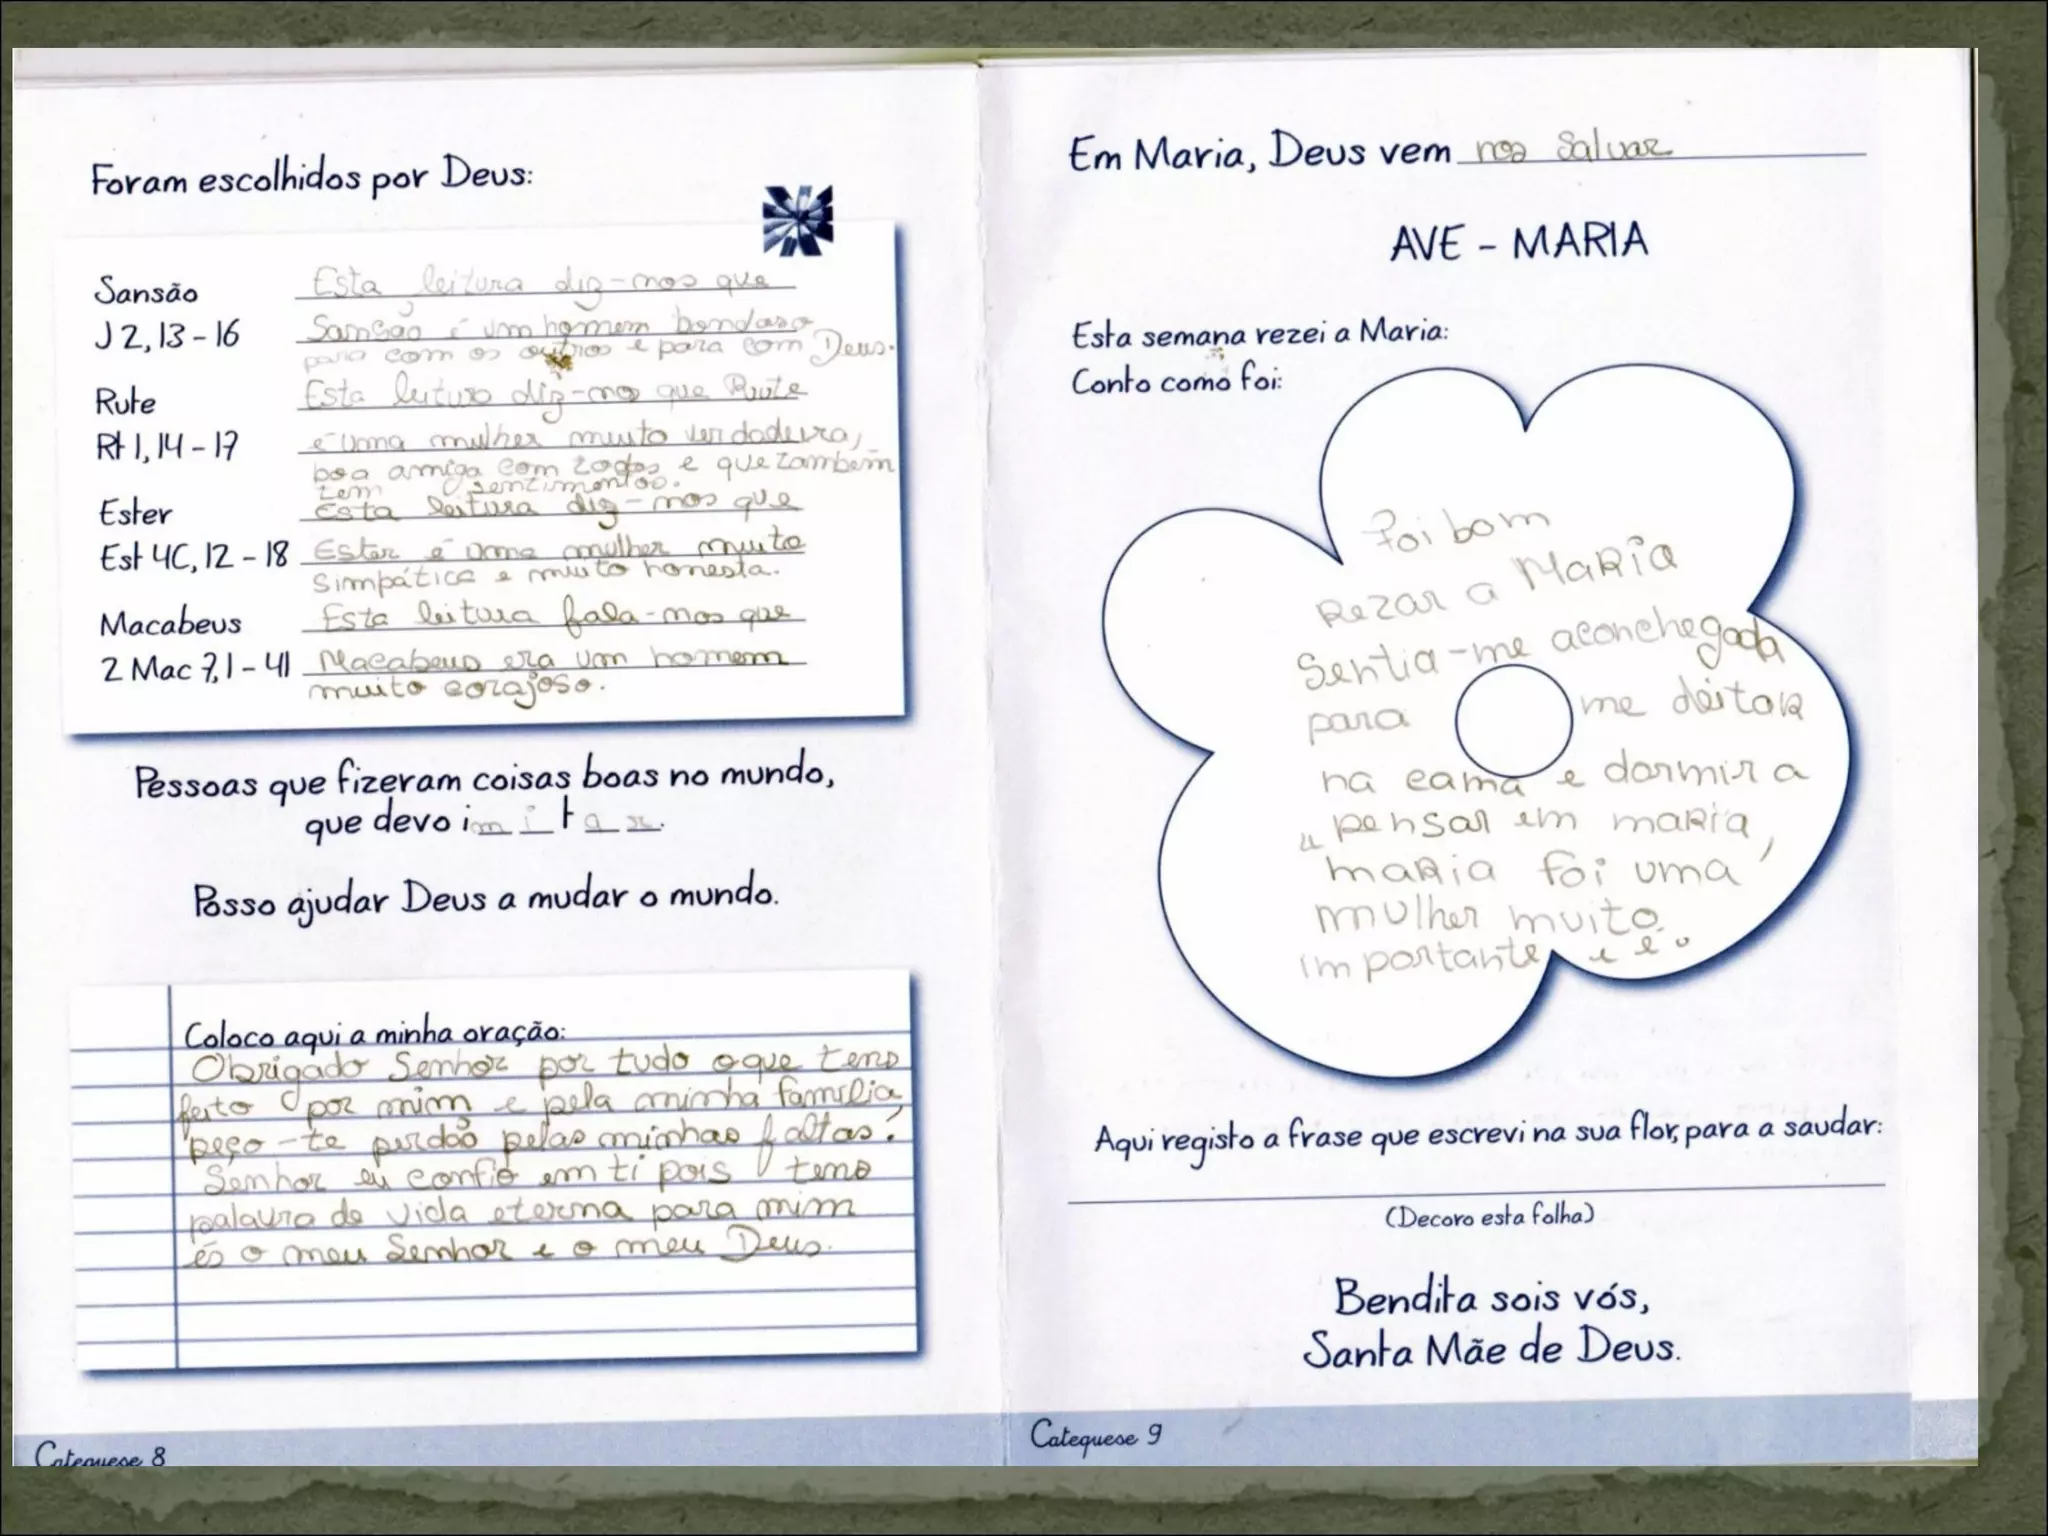 Foram escolhidos por Deus:
Sansão
J 2, 13 - 16
Esta leitura diz-nos que
Sansão é um homem bondoso
para com os outros e para com Deus.
Rute
Rt 1, 14 - 17
Esta leitura diz-nos que Rute
é uma mulher muito verdadeira,
boa amiga com todos e que também
tem sentimentos.
Ester
Est 4C, 12 - 18
Esta leitura diz-nos que
Ester é uma mulher muito
simpática e muito honesta.
Macabeus
2 Mac 7,1 - 41
Esta leitura fala-nos que
Macabeus era um homem
muito corajoso.
Pessoas que fizeram coisas boas no mundo,
que devo imitar.
Posso ajudar Deus a mudar o mundo.
Coloco aqui a minha oração:
Obrigado Senhor por tudo o que tens
feito por mim e pela minha família,
peço-te perdão pelas minhas faltas!
Senhor eu confio em ti pois tens
palavra de vida eterna para mim
és o meu Senhor e o meu Deus.
Catequese 8
Em Maria, Deus vem nos Salvar
AVE - MARIA
Esta semana rezei a Maria:
Conto como foi:
Foi bom
Rezar a MaRia
Sentia-me aconchegada
para me deitar
na cama e dormir a
pensar em maria,
maRia foi uma
mulher muito
importante e é.
Aqui registo a frase que escrevi na sua flor, para a saudar:
(Decoro esta folha)
Bendita sois vós,
Santa Mãe de Deus.
Catequese 9